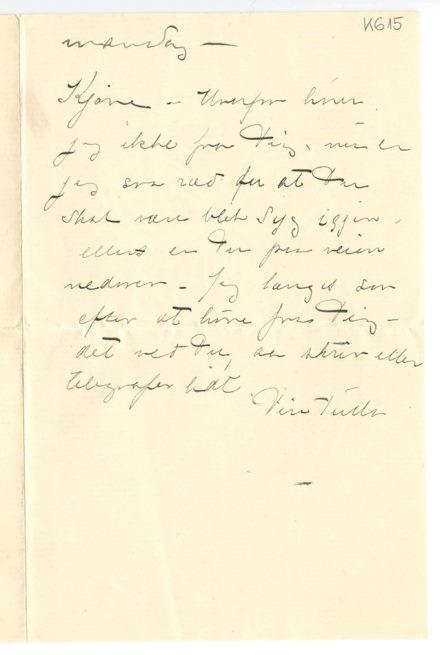 K615
mandag —
Kjære – Hvorfor hører
jeg ikke fra Dig, nu er
jeg saa ræd for at Du
skal være blet syg igjen,
ellers er Du paa veien
nedover – Jeg længes saa
efter at høre fra Dig –
det ved Du, aa skriv eller
telegrafer lidt
Din Tulla